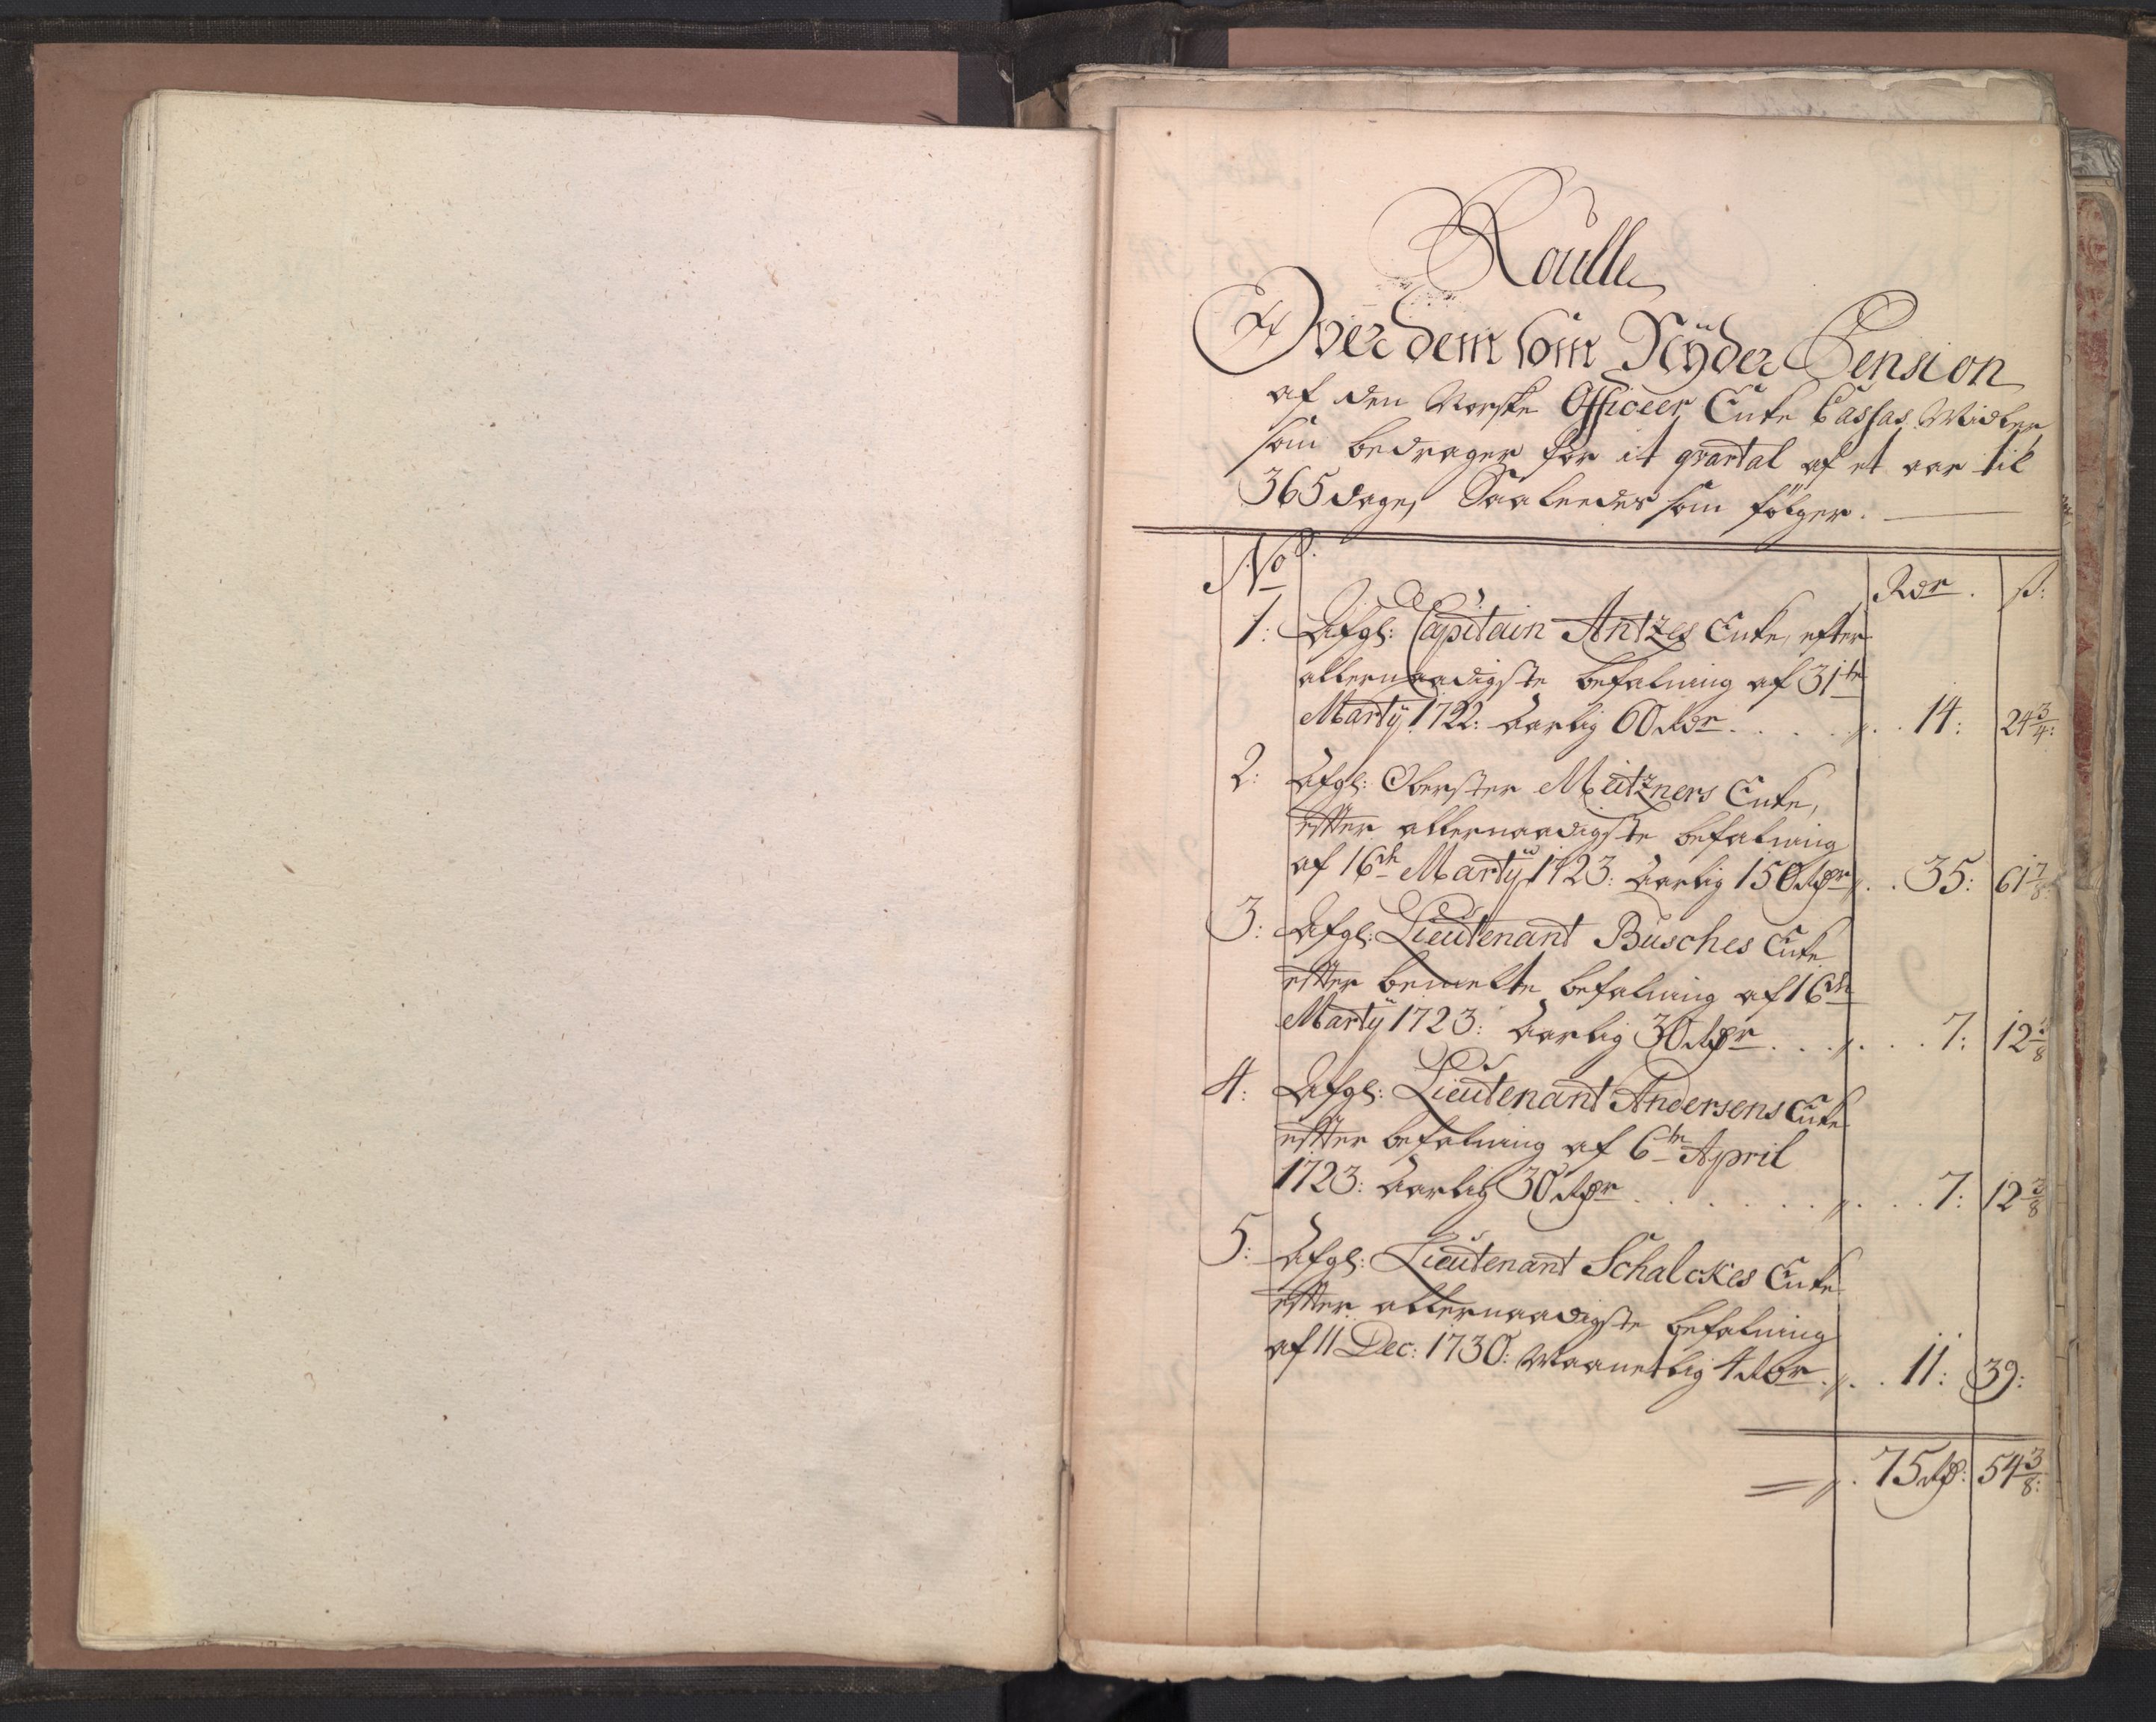 Roulle
Over dem som Nÿder Pension
af den Norske Officeer Enke Cassas Midler
som bedrager for it qvartal af et aar til
365 dage, Saaleedes som følger.
No. Rdr. ß:
1: Afgl: Capitain Antzes Enke, efter
allernaadigste befalning af 31te
Martÿ 1722: Aarlig 60 Rdr . . . . . 14: 24 3/4:
2: Afgl: Oberster Meützners Enke,
efter allernaadigste befalning
af 16de Martÿ 1723: Aarlig 150 Rdr . . 35: 61 7/8:
3: Afgl: Lieutenant Busches Enke
efter bemelte befalning af 16de
Martÿ 1723: Aarlig 30 Rdr . . . . . . 7: 12 3/8
4: Afgl: Lieutenant Andersens Enke
efter befalning af 6te April
1723: Aarlig 30 Rdr . . . . . . . . . 7: 12 3/8
5: Afgl: Lieutenant Schalckes Enke
efter allernaadigste befalning
af 11 Dec: 1730: Maanetlig 4 Rdr . . . 11: 39:
75 Rd: 54 3/8: